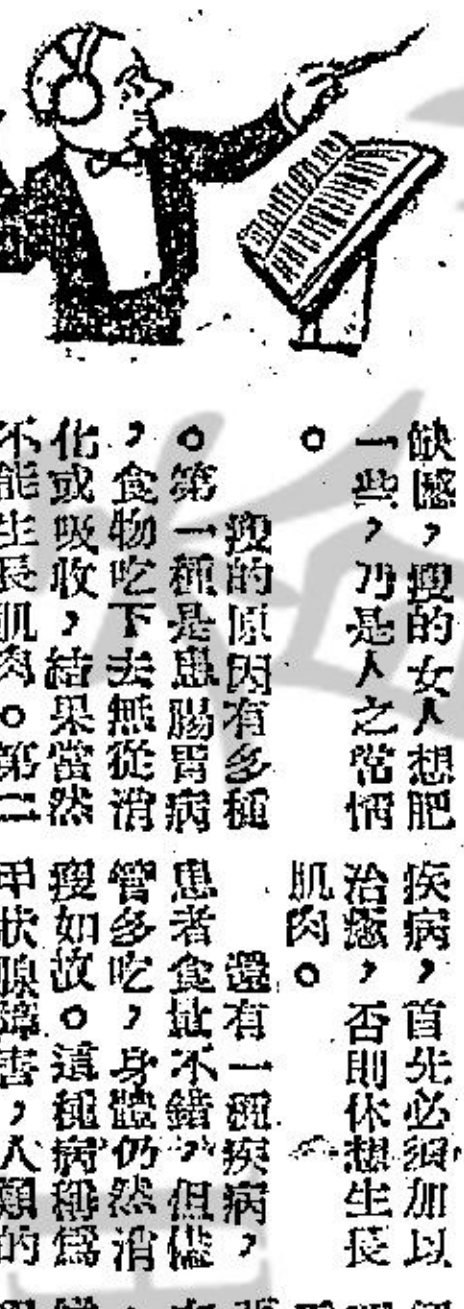 缺憾，瘦的女人想肥
一些，乃是人之常情
。
瘦的原因有多種
。第一種是患腸胃病
，食物吃下去無從消
化或吸收，結果當然
不能生長肌肉。第二
疾病，首先必須加以
治癒，否則休想生長
肌肉。
還有一種疾病，
患者食量不錯，但儘
管多吃，身體仍然消
瘦如故。這種病稱爲
甲狀腺障害，人類的